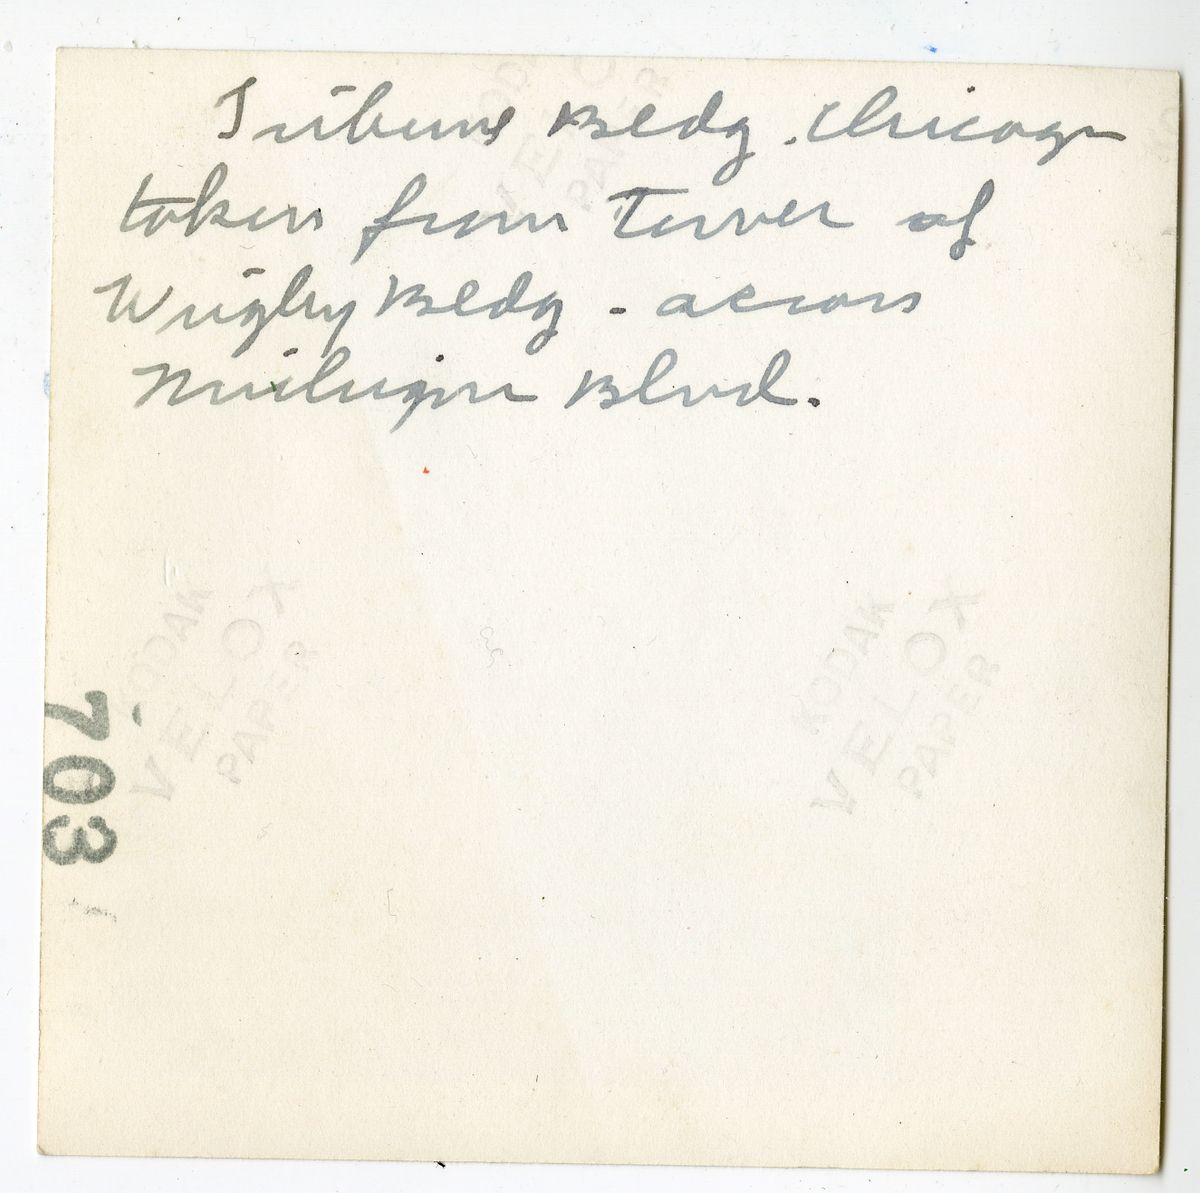 Tribune Bldg. Chicago
taken from Tower of
Wrigley Bldg - across
Michigan Blvd.
KODAK
VELOX
PAPER
KODAK
VELOX
PAPER
KODAK
VELOX
PAPER
703